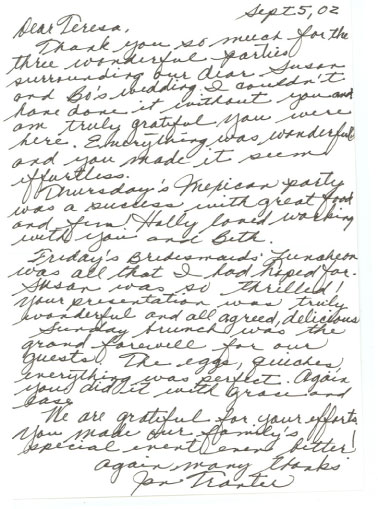 Sept 5, 02
Dear Teresa,
Thank you so much for the
three wonderful parties
surrounding our dear Susan
and Bo's wedding I couldn't
have done it without you and
am truly grateful you were
here. Everything was wonderful
and you made it seem
effortless.
Thursday's Mexican party
was a success with great food
and fun! Holly loved working
with you and Beth.
Friday's Bridesmaids' Luncheon
was all that I had hoped for.
Susan was so thrilled!
Your presentation was truly
wonderful and all agreed, delicious
Sunday brunch was the
grand farewell for our
guests. The eggs, quiches,
everything was perfect. Again
you did it with grace and
ease.
We are grateful for your efforts.
You made our family's
special event even better!
Again many thanks
Jan